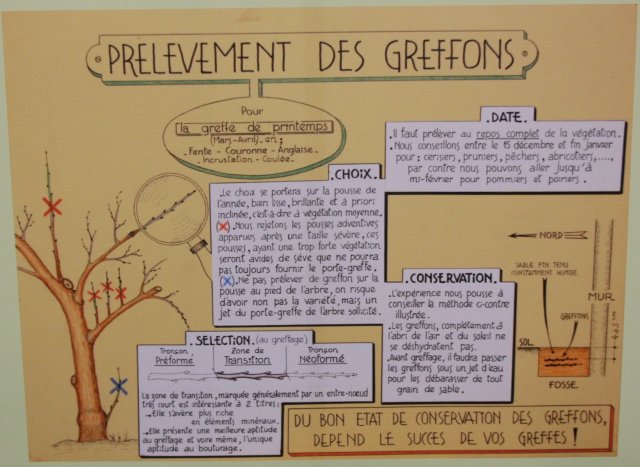 PRELEVEMENT DES GREFFONS
Pour
la greffe de printemps
(Mars-Avril) en :
- Fente - Couronne - Anglaise -
Incrustation - Coulée -
.DATE.
.Il faut prélever au repos complet de la végétation.
.Nous conseillons entre le 15 décembre et fin janvier
pour : cerisiers, pruniers, pêchers, abricotiers,.....,
par contre nous pouvons aller jusqu'à
mi-février pour pommiers et poiriers .
.CHOIX.
.Le choix se portera sur la pousse de
l'année, bien lisse, brillante et à priori
inclinée, c'est-à-dire à végétation moyenne.
(X).Nous rejetons les pousses adventives
apparues après une taille sévère, ces
pousses, ayant une trop forte végétation
seront avides de sève que ne pourra
pas toujours fournir le porte-greffe.
(X).Ne pas prélever de greffon sur la
pousse au pied de l'arbre, on risque
d'avoir non pas la variété, mais un
jet du porte-greffe de l'arbre sollicité.
NORD
SABLE FIN TENU
CONSTAMMENT HUMIDE
MUR
GREFFONS
SOL
FOSSE
.CONSERVATION.
.L'expérience nous pousse à
conseiller la méthode ci-contre
illustrée.
.Les greffons, complètement à
l'abri de l'air et du soleil ne
se déshydratent pas.
.Avant greffage, il faudra passer
les greffons sous un jet d'eau
pour les débarasser de tout
grain de sable.
.SELECTION. (au greffage)
Tronçon Préformé
Zone de Transition
Tronçon Néoformé
La zone de transition, marquée généralement par un entre-nœud
très court est intéressante à 2 titres :
- Elle s'avère plus riche
en éléments minéraux.
- Elle présente une meilleure aptitude
au greffage et voire même, l'unique
aptitude au bouturage.
DU BON ETAT DE CONSERVATION DES GREFFONS,
DEPEND LE SUCCES DE VOS GREFFES !